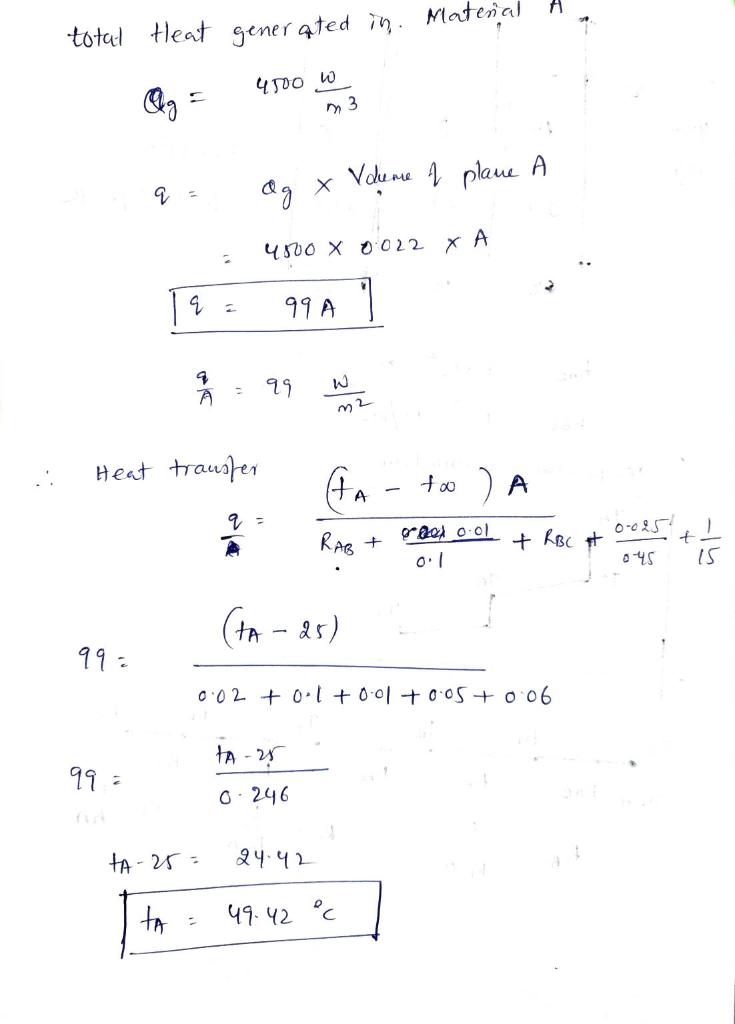 total Heat generated in. Material A
Qg = 4500 W/m3
q = Qg x Volume of plane A
= 4500 x 0.022 x A
q = 99 A
q/A = 99 W/m2
∴ Heat transfer
q/A = (tA - t∞) A / RAB + 0.01/0.1 + RBC + 0.025/0.45 + 1/15
99 = (tA - 25) / 0.02 + 0.1 + 0.01 + 0.05 + 0.06
99 = tA - 25 / 0.246
tA - 25 = 24.42
tA = 49.42 °C